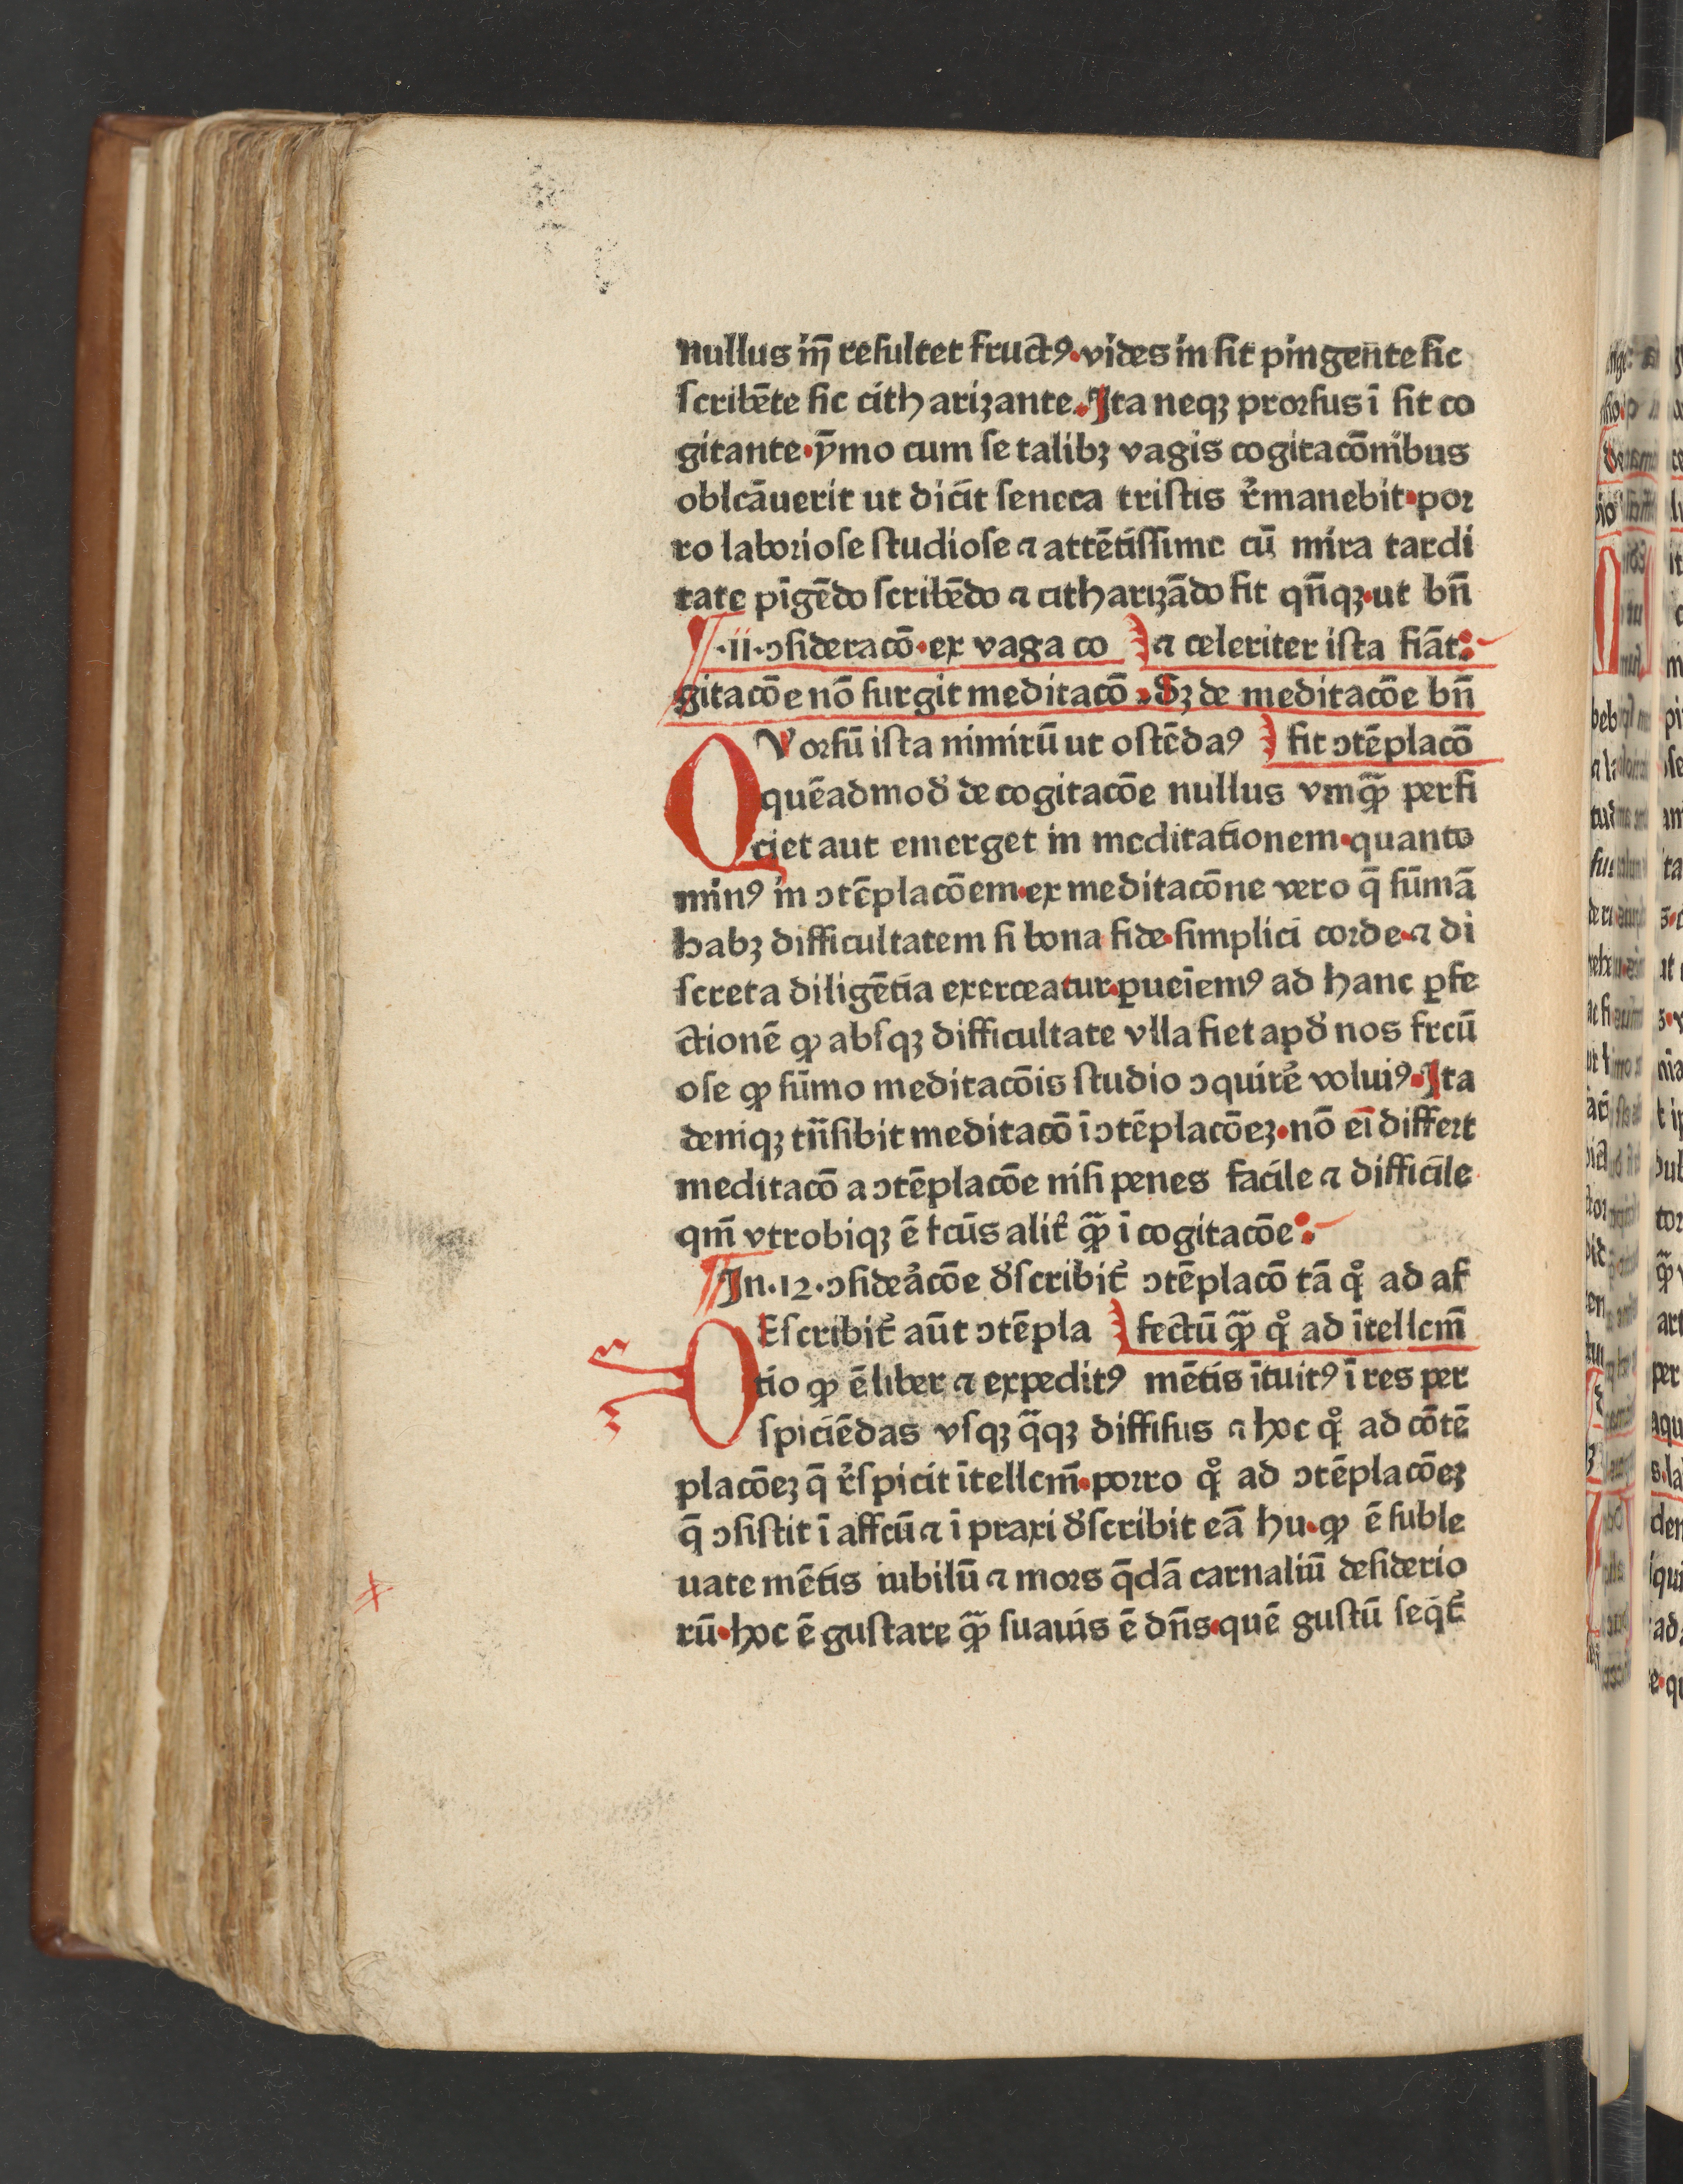 nullus iñ resultet fructꝰ·vides in sit pingente sic
ſcribēte sic cith ariȝante.Ita neqȝ prorsus ī sit co
gitante·ȳmo cum ſe talibȝ vagis cogitacōnibus
oblcāuerit ut dicit ſeneca triſtis r̄manebit·por
ro laborioſe ſtudioſe ⁊ attētiſſime cū mira tardi
tate pīgēdo ſcribēdo ⁊ cithariȝādo sit qn̄qȝ·ut bn̄
·ii·ↄsideracō·ex vaga co
⁊ celeriter iſta fiāt:
gitacōe nō surgit meditacō ·Sȝ de meditacōe bn̄
QVorsū iſta nimirū ut oſtēdaꝰ
fit ↄtēplacō
quēadmoď de cogitacōe nullus vmꝙ̃ perfi
ciet aut emerget in meditationem·quanto
minꝰ in ↄtēplacōem·ex meditacōne vero q̄ sūmā
habȝ difficultatem si bona fide·simplici corde·⁊ di
ſcreta diligētia exerceatur·ꝑueīemꝰ ad hanc ꝑfe
ctionē ꝙ abſqȝ difficultate vlla fiet apď nos frcū
oſe ꝙ sūmo meditacōis ſtudio ↄquirē voluiꝰ·Ita
deniqȝ tn̄sibit meditacō ī ↄtēplacōeȝ·nō eī differt
meditacō a ↄtēplacōe nisi penes facile ⁊ difficile
qm̄ vtrobiqȝ ē frcūs alit̄ ꝙ̃ ī cogitacōe:
In·12·ↄsideācōe ďſcribit̄ ↄtēplacō tā qͦ ad af
DEſcribit̄ aūt ↄtēpla
fectū ꝙ̃ qͦ ad ītellcm̄
tio ꝙ ē liber ⁊ expeditꝰ mētis ītuitꝰ ī res per
ſpiciēdas vſqȝ q̄qȝ diffisus ⁊ hoc qͦ ad cōtē
placōeȝ q̄ r̄ſpicit ītellcm̄·porro qͦ ad ↄtēplacōeȝ
q̄ ↄsiſtit ī affcū ⁊ ī praxi ďſcribit eā hu·ꝙ ē suble
uate mētis iubilū ⁊ mors q̄dā carnaliū desiderio
rū·hoc ē guſtare ꝙ̃ ſuauis ē dn̄s·quē guſtū ſeqt̄